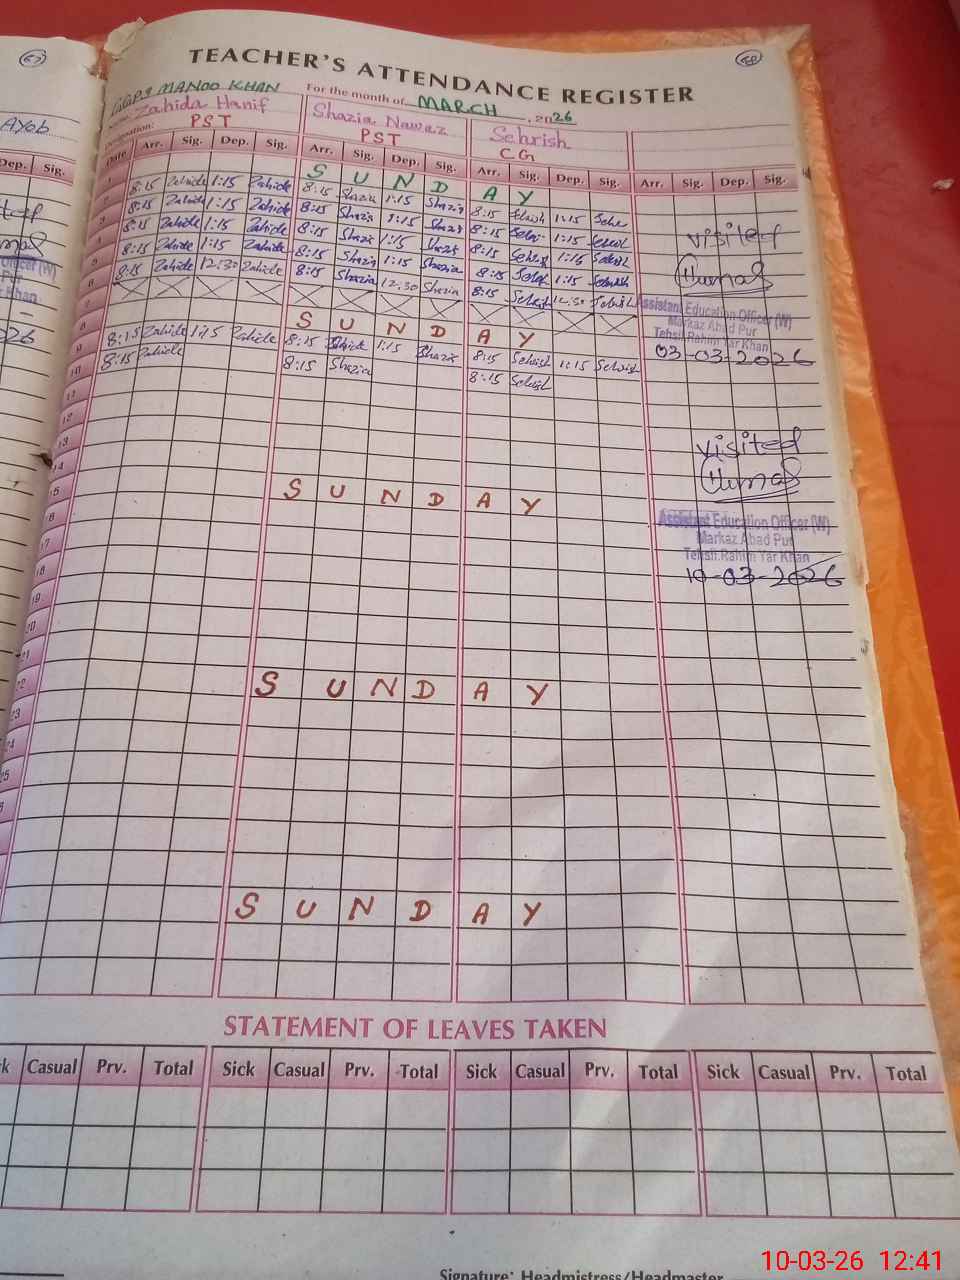 67
68
TEACHER'S ATTENDANCE REGISTER
MANOO KHAN For the month of MARCH, 2026
Name: Zahida Hanif Shazia Nawaz Sehrish
Designation: PST PST CG
Ayob
Dep. Sig.
Date Arr. Sig. Dep. Sig. Arr. Sig. Dep. Sig. Arr. Sig. Dep. Sig. Arr. Sig. Dep. Sig.
1 S U N D A Y
2 8:15 Zahide 1:15 Zahide 8:15 Shazia 1:15 Shazia 8:15 1:15
3 8:15 Zahide 1:15 Zahide 8:15 Shazia 1:15 Shazia 8:15 1:15
4 8:15 Zahide 1:15 Zahide 8:15 Shazia 1:15 Shazia 8:15 1:16
5 8:15 Zahide 1:15 Zahide 8:15 Shazia 1:15 Shazia 8:15 1:15
6 8:15 Zahide 12:30 Zahide 8:15 Shazia 12:30 Shazia 8:15 12:30
7
8 S U N D A Y
9 8:15 Zahide 1:15 Zahide 8:15 1:15 Shazia 8:15 Sehrish 1:15 Sehrish
10 8:15 Zahide 8:15 Shazia 8:15 Sehrish
11
12
13
14
15 S U N D A Y
16
17
18
19
20
21
22 S U N D A Y
23
24
25
S U N D A Y
visited
Humas
Assistant Education Officer (W)
Markaz Abad Pur
Tehsil Rahim Yar Khan
03-03-2026
visited
Humas
Assistant Education Officer (W)
Markaz Abad Pur
Tehsil Rahim Yar Khan
10-03-2026
STATEMENT OF LEAVES TAKEN
Casual Prv. Total Sick Casual Prv. Total Sick Casual Prv. Total Sick Casual Prv. Total
Signature: Headmistress/Headmaster
10-03-26 12:41